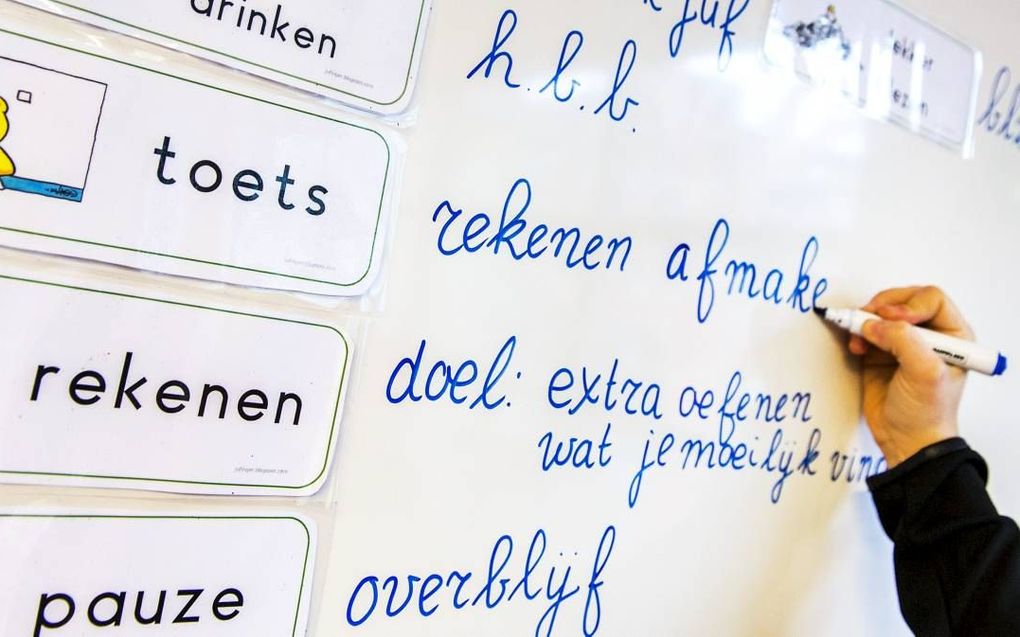 drinken
toets
rekenen
pauze
juf
h.b.b.
rekenen afmake
doel: extra oefenen
wat je moeilijk vind
overblijf
lekker
lezen